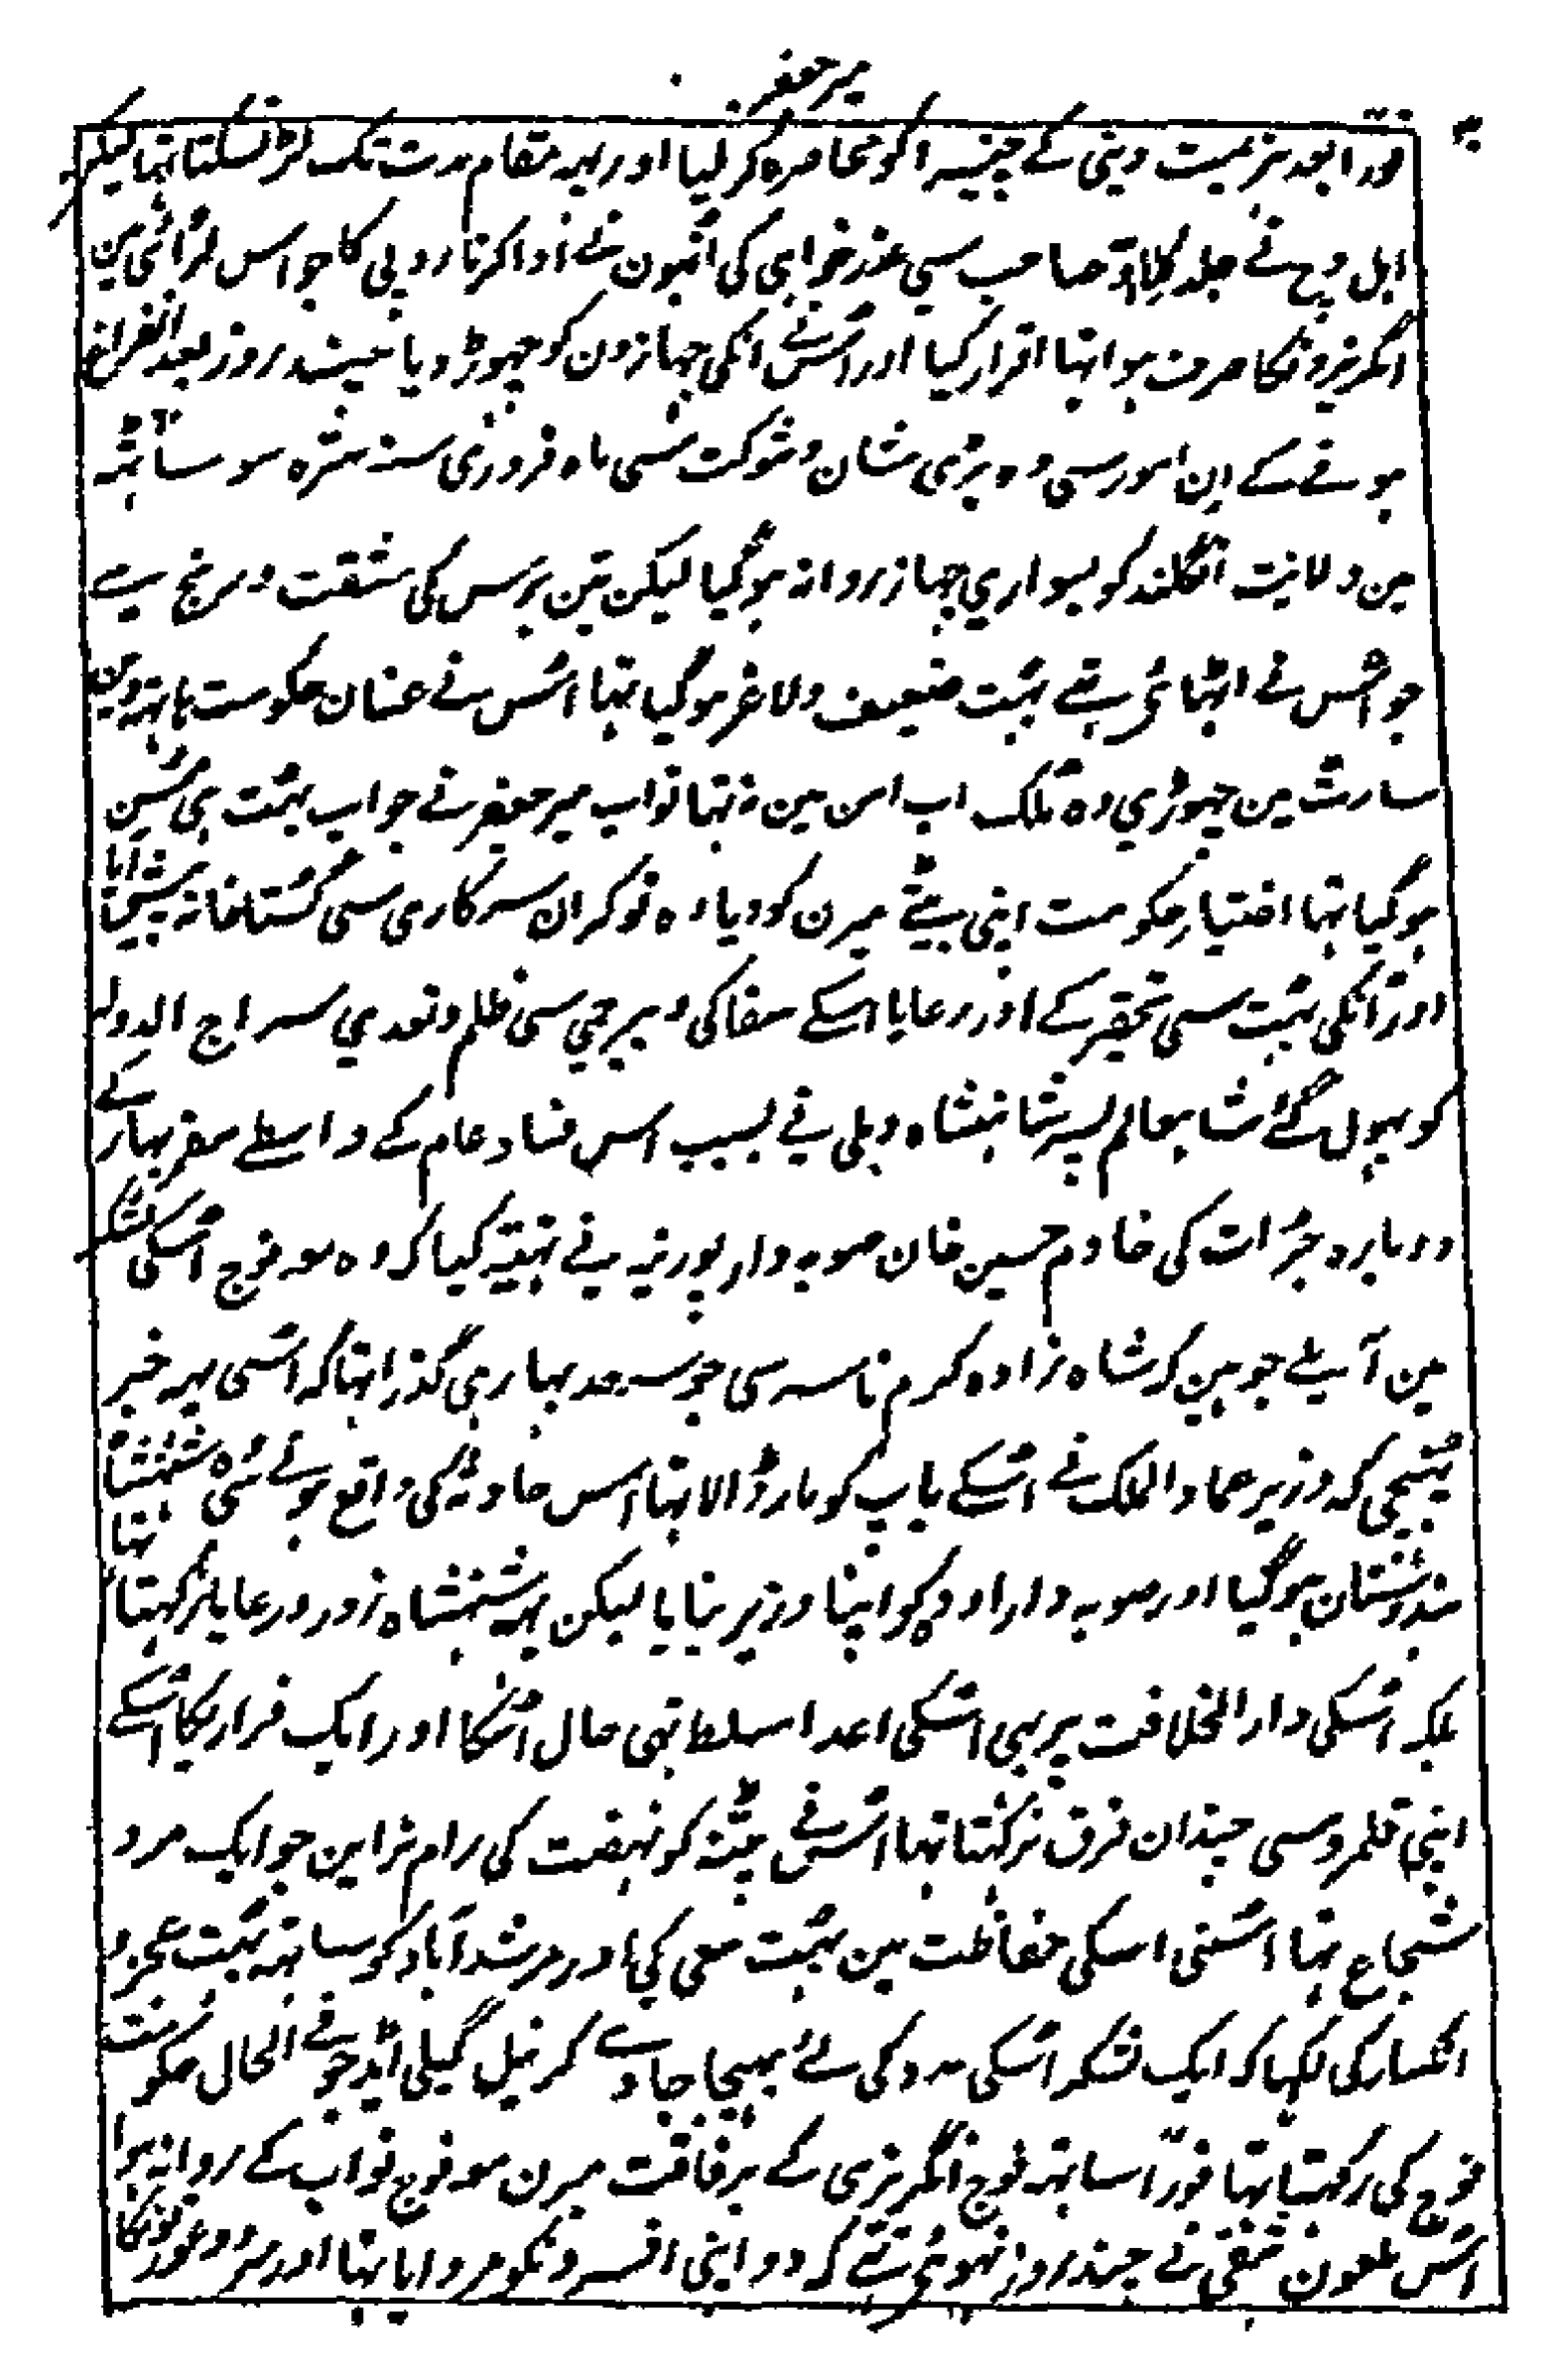 میر جعفر
فوراً بعد ہزیمت دینی کے چنسرا کو محاصرہ کر لیا اور یہہ مقام مدت تک لڑ نسکتا تہا لیکن
اہل ڈچ نے جلد کلایو صاحب سی عذر خواہی کی انہون نے ادا کرنا روپی کا جو اس لڑائی مین
انگریزونکا صرف ہوا تہا اقرار کیا اور اُسنے انکی جہازون کو چہوڑ دیا چند روز بعد انفراغ
ہونے کے ان امور سی وہ بڑی شان و شوکت سی ماہ فروری سنہ سترہ سو ساٹہہ
مین ولایت انگلند کو بسواری جہاز روانہ ہو گیا لیکن تین برس کی مشقت و رنج سے
جو اُس نے اٹہائی تہے بہت ضعیف و لاغر ہو گیا تہا اُس نے عنان حکومت ہاتہہ وین
سارٹ مین چہوڑی وہ ملک اب امن مین نہ تہا نواب میر جعفر نے جو اب بہت ہی مسن
ہو گیا تہا اختیارِ حکومت اپنی بیٹے میرن کو دیا وہ نوکران سرکاری سی گستاخانہ پیش آیا
اور انکی بہت سی تحقیر کے اور رعایا اسکے سفاکی و بیرحمی سی ظلم و تعدی سراج الدولہ
کو بہول گئے شاہعالم پسر شاہنشاہ دہلی نے بسبب اس فساد عام کے واسطے سفر بہار کے
دوبارہ جرُات کی خادم حسین خان صوبہ دار پورنیہ نے تہیتہ کیا کہ وہ معہ فوج اُسکی لشکر
مین آ ملے جوہین کہ شاہ زادہ کرم ناسہ سی جو سرحد بہار ہی گذرا تہا کہ اُسی یہہ خبر
پہنچی کہ وزیر عماد الملک نے اُسکے باپ کو مار ڈالا تہا اس حادثہ کی واقع ہونے سی وہ شہنشاہ
ہندوستان ہو گیا اور صوبہ دار اودہ کو اپنا وزیر بنایا لیکن یہہ شہنشاہ زور و رعایا نرکہتا تہا
بلکہ اُسکی دار الخلافت پر بہی اُسکی اعدا مسلط تہی حال اُسکا اور ایک فراریکا اُسکے
اپنی قلمرو سی چندان فرق نرکہتا تہا اُس نے پٹنہ کو نہضت کی رام نراین جو ایک مرد
شجاع تہا اُسنی اسکی حفاظت مین بہت سعی کی اور مرشد آباد کو ساتہہ بہت عجز و
انکسار کی لکہا کہ ایک لشکر اُسکی مدد کی لئے بہیجا جاوے کرنیل کیلی اڈ جو فے الحال حکومت
فوج کی رکہتا تہا فوراً ساتہہ فوج انگریزی کے برفاقت میرن معہ فوج نواب کے روانہ ہوا
اُس ملعون شقی نے چند روز نہوئی تہے کہ دو اپنی افسرونکو مروایا تہا اور سر دو عورتونکا